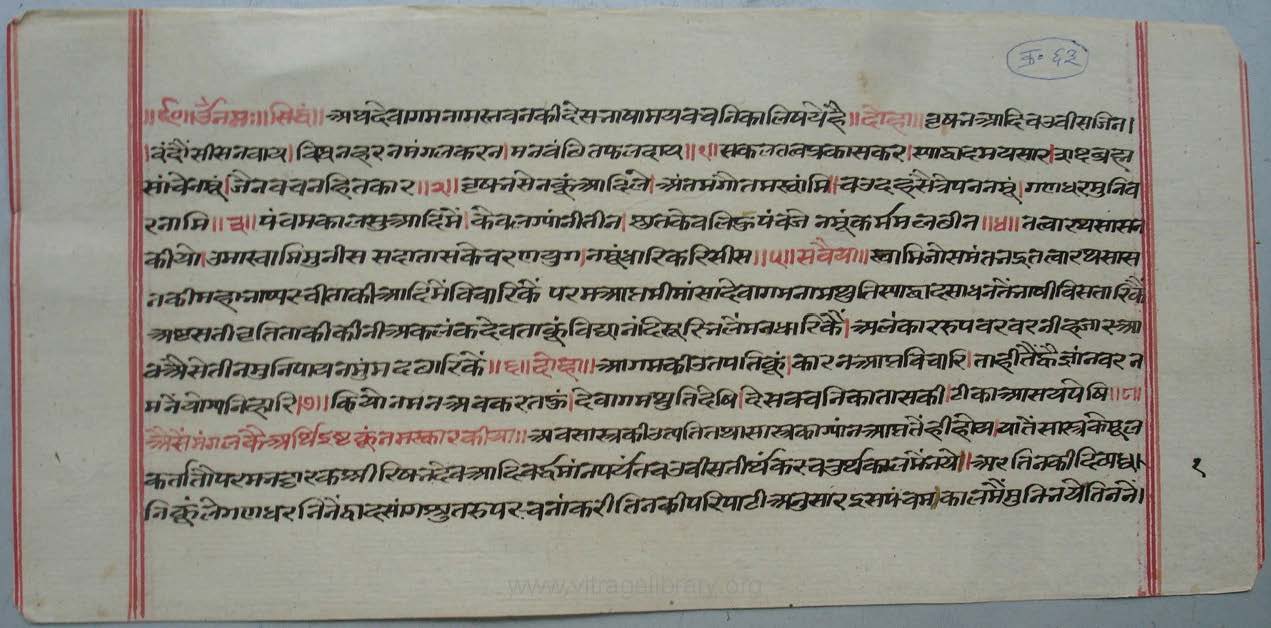 क्र॰ ६३
॥र्द०॥ उँनमः॥ सिद्धं॥ अथ देवागमनामस्तवनकी देसभाषामय वचनिका लिषये है॥ दोहा॥ वृषभ आदि चउवीस जिन।
। वंदौं सीस नवाय। विघनहरन मंगलकरन। मनवंछित फलदाय॥१॥ सकलतत्वप्रकासकर। स्याद्वादमय सार। शब्दब्रह्म
सांचे नमूं। जैन वचन हितकार॥२॥ वृषभसेनकूं आदि ले। अंतम गोतम स्वांमि। चउदहसै त्रेपन नमूं। गणधर मुनिव
र नामि॥३॥ पंचमकालसु आदिमें। केवलग्यांनी तीन। श्रुतकेवलि फुनि पंच जे नमूं कर्ममल छीन॥४॥ तत्वारथसासन
कीयो। उमास्वामि मुनीस सदा तासके चरण युग। नमूं धारि करि सीस॥५॥ सवैया॥ स्वामिजो समंतभद्र तत्वारथसास
नकी महाभाष्य रची ताकी आदिमें विचारिकें परम आप्तमीमांसा देवागम नाम श्रुति स्याद्वाद साधनतें भाषी विसतारिकै
अष्टसती वृति ताकी कीनी अकलंकदेव ताकूं विद्यानंदि सूरि भलै मन धारिकैं। अलंकाररूप वर वरनी हजार आ
ठ अैसे तीन मुनि पाय नमुं मद छारिकें॥६॥ दोहा॥ आगमकी उतपतिकूं। कारन आप्त विचारि। ताहीतैं ह्वै ज्ञांन वर न
मनें योग्य निहारि।७॥ कियो नमन अव करत हूं। देवागम श्रुति देषि। देसवचनिका तासकी। टीका आसय पेषि॥८॥
अैसैं मंगलकै अर्थि इष्टकूं नमस्कार कीया॥ अव सास्त्रकी उत्पति तथा सास्त्रका ग्यांन आप्ततें ही होय। यातें सास्त्रके मूल
कर्ता तौ परमभट्टारक श्री रिषभदेव आदि वर्द्धमांन पर्यंत चउवीस तीर्थंकर चतुर्थकालमें भये॥ अर तिनकी दिव्यध्व
निकूं ले गणधर निनें द्वादसांग श्रुतरूप रचनां करी तिनकी परिपाटी अनुसार इस पंचम कालमें मुनि भये तिननें।
१
www.vitragelibrary.org